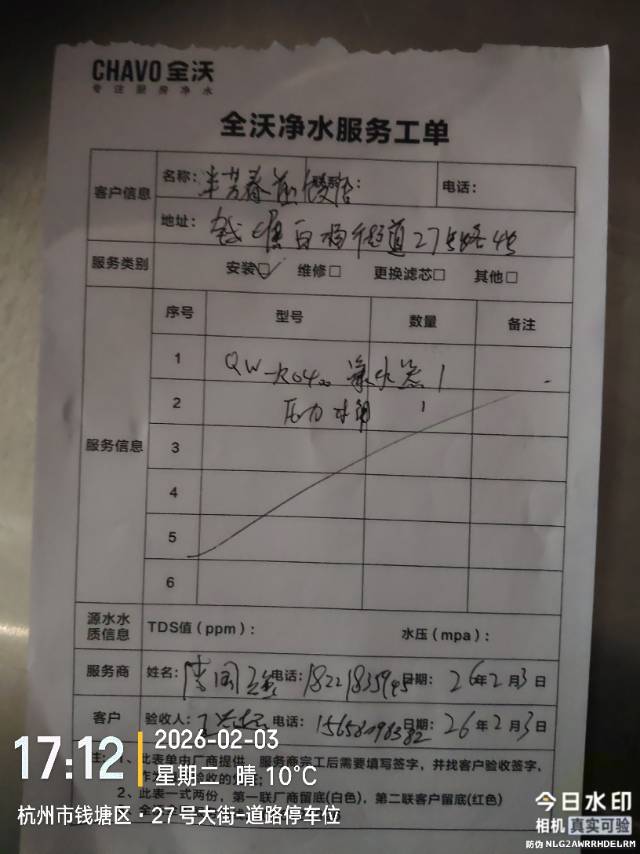 CHAVO 全沃
专注厨房净水
全沃净水服务工单
客户信息
名称：
电话：
地址：钱塘白杨街道27号路4号
服务类别
安装☑ 维修□ 更换滤芯□ 其他□
服务信息
序号 型号 数量 备注
1 QW-RO400 净水器 1
2 压力水桶 1
3
4
5
6
源水水质信息
TDS值（ppm）： 水压（mpa）：
服务商 姓名： 电话：18221835945 日期：26年2月3日
客户 验收人： 电话： 日期：26年2月3日
注：1、此表单由厂商提供，服务商完工后需要填写签字，并找客户验收签字，
2、此表一式两份，第一联厂商留底(白色)，第二联客户留底(红色)
17:12
2026-02-03
星期二 晴 10℃
杭州市钱塘区·27号大街-道路停车位
今日水印
相机 真实可验
防伪 NLG2AWRRHDELRM